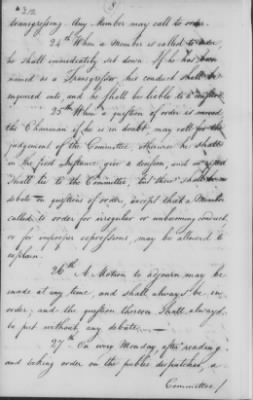 212 3
transgressing. Any Member may call to order.
24th When a Member is called to order,
he shall immediately set down. If he has been
named as a Transgressor, his conduct shall be
inquired into, and he shall be liable to a censure
25th When a question of order is moved
the Chairman if he is in doubt, may call for the
judgement of the Committee, otherwise he shall
in the first Instance give a decision, and an appeal
shall lie to the Committee, but there shall be no
debate on questions of order, except that a Member
called to order for irregular or unbecoming conduct,
or for improper expressions, may be allowed to
explain.
26th A Motion to adjourn may be
made at any time, and shall always be in
order, and the question thereon shall always
be put without any debate.—
27th On every Monday after reading
and taking order on the public dispatches, a
Committee /